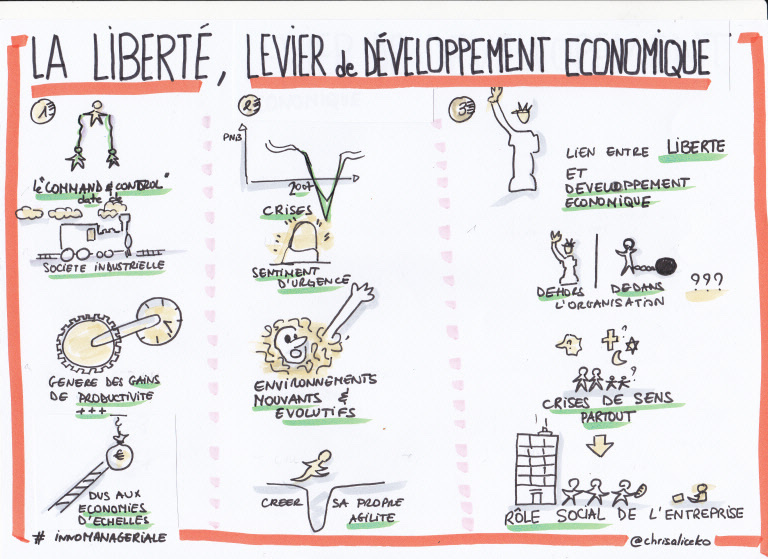 LA LIBERTÉ, LEVIER de DÉVELOPPEMENT ECONOMIQUE
1
Le "COMMAND & CONTROL"
date de
SOCIETE INDUSTRIELLE
GENERE DES GAINS
DE PRODUCTIVITE
+++
€
DUS AUX
ECONOMIES
D'ECHELLES
# INNOMANAGERIALE
2
PNB
2007
CRISES
SENTIMENT
D'URGENCE
ENVIRONNEMENTS
MOUVANTS &
EVOLUTIFS
CREER SA PROPRE
AGILITE
3
LIEN ENTRE LIBERTE
ET
DEVELOPPEMENT
ECONOMIQUE
DEHORS DEDANS ???
L'ORGANISATION
?
?
?
CRISES DE SENS
PARTOUT
RÔLE SOCIAL DE L'ENTREPRISE
@chrisaliceko